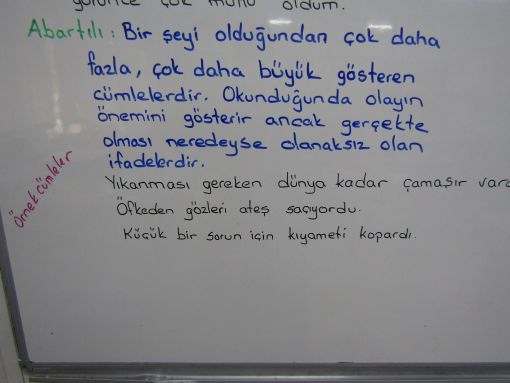 görünce çok mutlu oldum.
Abartılı: Bir şeyi olduğundan çok daha
fazla, çok daha büyük gösteren
cümlelerdir. Okunduğunda olayın
önemini gösterir ancak gerçekte
olması neredeyse olanaksız olan
ifadelerdir.
Örnek cümleler
Yıkanması gereken dünya kadar çamaşır vard
Öfkeden gözleri ateş saçıyordu.
Küçük bir sorun için kıyameti kopardı.